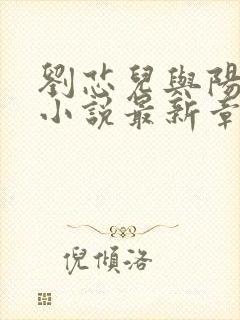 劉恣兒與陽
小說最新章
倪傾洛